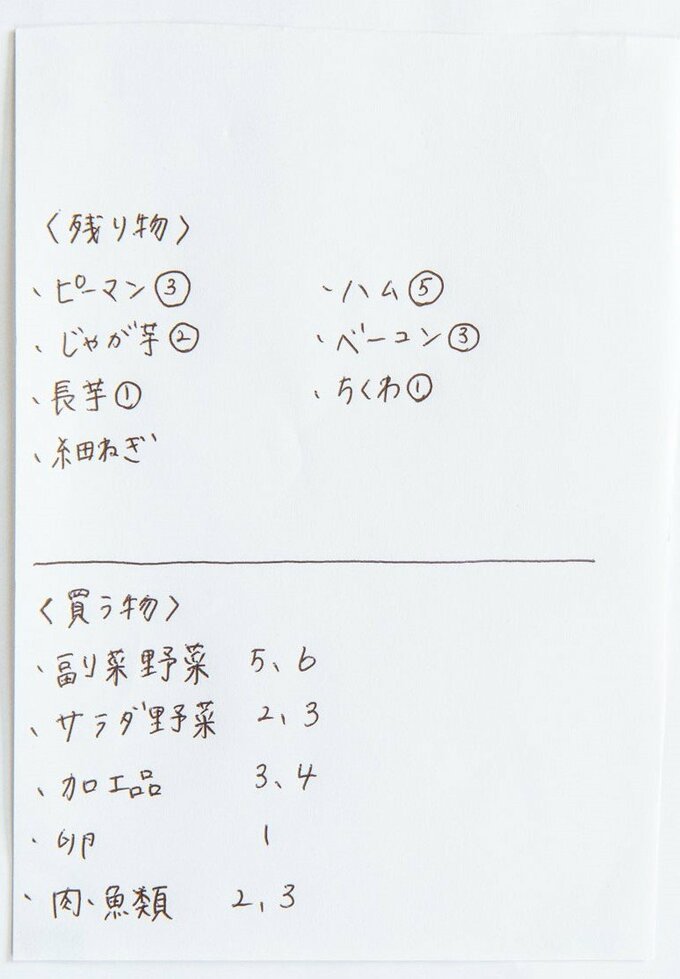 〈残り物〉
・ピーマン③
・じゃが芋②
・長芋①
・細ねぎ
・ハム⑤
・ベーコン③
・ちくわ①
〈買う物〉
・副菜野菜 5、6
・サラダ野菜 2、3
・加工品 3、4
・卵 1
・肉・魚類 2、3